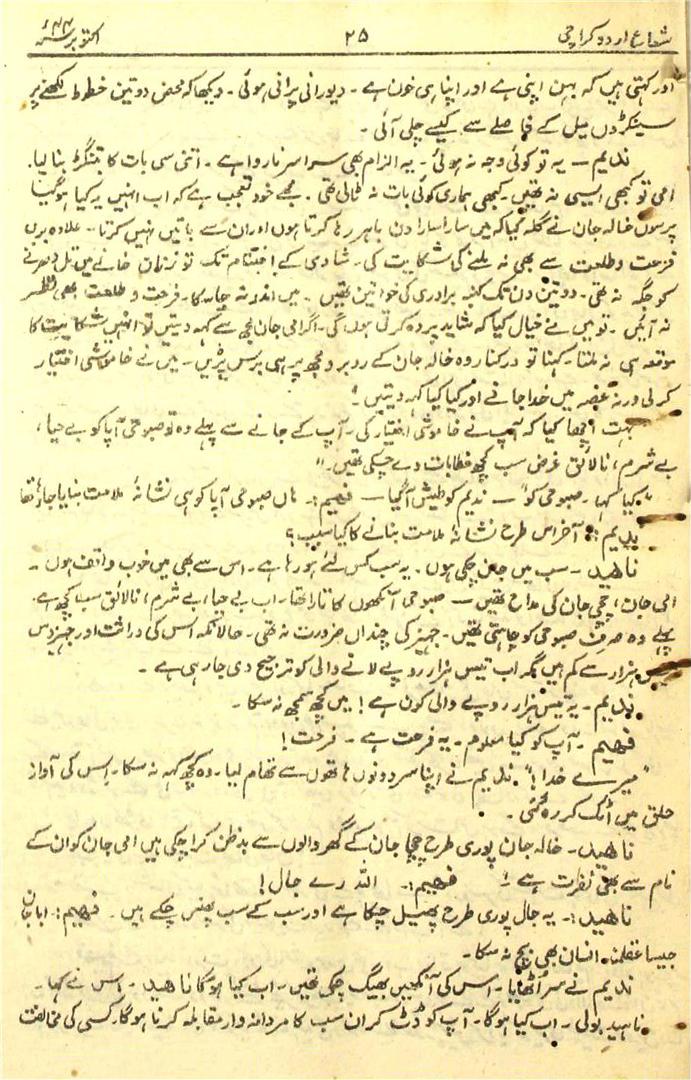 شعاع اردو کراچی ۲۵ اکتوبر ۴۴ء
اور کہتی ہیں کہ بہن اپنی ہے اور اپنا ہی خون ہے ۔ دیورانی پرائی ہوئی ۔ دیکھا کہ محض دو تین خطوط لکھنے پر
سینکڑوں میل کے فاصلے سے کیسے چلی آئی ۔
ندیم — یہ تو کوئی وجہ نہ ہوئی ۔ یہ الزام بھی سراسر ناروا ہے ۔ اتنی سی بات کا بتنگڑ بنا لیا.
امی تو کبھی ایسی نہ تھیں ۔ کبھی ہماری کوئی بات نہ ٹالی تھی . مجھے خود تعجب ہے کہ اب انہیں یہ کیا ہو گیا
پرسوں خالہ جان نے گلہ کیا کہ میں سارا سارا دن باہر رہا کرتا ہوں اور ان سے باتیں نہیں کرتا ۔ علاوہ بریں
فرحت و طلعت سے بھی نہ ملنے کی شکایت کی ۔ شادی کے اختتام تک تو زنان خانے میں تل دھرنے
کو جگہ نہ تھی ۔ دو تین دن تک کنبہ برادری کی خواتین تھیں ۔ میں اندر نہ جا سکا ۔ فرحت و طلعت بھی نظر
نہ آئیں ۔ تو میں نے خیال کیا کہ شاید پردہ کرتی ہوں گی ۔ اگر امی جان مجھ سے کہہ دیتیں تو انہیں شکایت کا
موقعہ ہی نہ ملتا ۔ کہنا تو درکنار وہ خالہ جان کے روبرو مجھ پر ہی برس پڑیں ۔ میں نے خاموشی اختیار
کر لی ورنہ غصہ میں خدا جانے اور کیا کیا کہہ دیتیں !
بہت اچھا کیا کہ آپ نے خاموشی اختیار کی ۔ آپ کے جانے سے پہلے وہ تو صبوحی آپا کو بے حیا ،
بے شرم ، نالائق غرض سب کچھ خطابات دے چکی تھیں ۔"
"کیا کہا ۔ صبوحی کو" — ندیم کو طیش آگیا — فہیم :۔ ہاں صبوحی آپا کو ہی نشانۂ ملامت بنایا جا رہا تھا
ندیم :۔ آخر اس طرح نشانۂ ملامت بنانے کا کیا سبب ؟
ناھید ۔ سب میں جان چکی ہوں ۔ یہ سب کس لئے ہو رہا ہے ۔ اس سے بھی میں خوب واقف ہوں ۔
امی جان ، چچی جان کی مداح تھیں — صبوحی آنکھوں کا تارا تھا ۔ اب بے حیا ، بے شرم ، نالائق سب کچھ ہے .
پہلے وہ صرف صبوحی کو چاہتی تھیں ۔ جہیز کی چنداں ضرورت نہ تھی ۔ حالانکہ اس کی وراثت اور جہیز دس
ہزار سے کم ہیں مگر اب تیس ہزار روپے لانے والی کو ترجیح دی جا رہی ہے ۔
ندیم ۔ یہ تیس ہزار روپے والی کون ہے ! میں کچھ سمجھ نہ سکا ۔
فہیم ۔ آپ کو کیا معلوم ۔ یہ فرحت ہے ۔ فرحت !
"میرے خدا !" ۔ ندیم نے اپنا سر دونوں ہاتھوں سے تھام لیا ۔ وہ کچھ کہہ نہ سکا ۔ اس کی آواز
حلق میں اٹک کر رہ گئی ۔
ناھید ۔ خالہ جان پوری طرح چچا جان کے گھر والوں سے بدظن کرا چکی ہیں امی جان کو ان کے
نام سے بھی نفرت ہے ! فہیم :۔ اللہ رے جال !
ناھید :۔ یہ جال پوری طرح پھیل چکا ہے اور سب کے سب پھنس چکے ہیں ۔ فہیم :۔ ابا جان
جیسا عقلمند انسان بھی بچ نہ سکا ۔
ندیم نے سر اٹھایا ۔ اس کی آنکھیں بھیگ چکی تھیں ۔ اب کیا ہوگا ناھید ۔ اس نے کہا ۔
ناہید بولی ۔ اب کیا ہوگا ۔ آپ کو ڈٹ کر ان سب کا مردانہ وار مقابلہ کرنا ہوگا ۔ کسی کی مخالفت